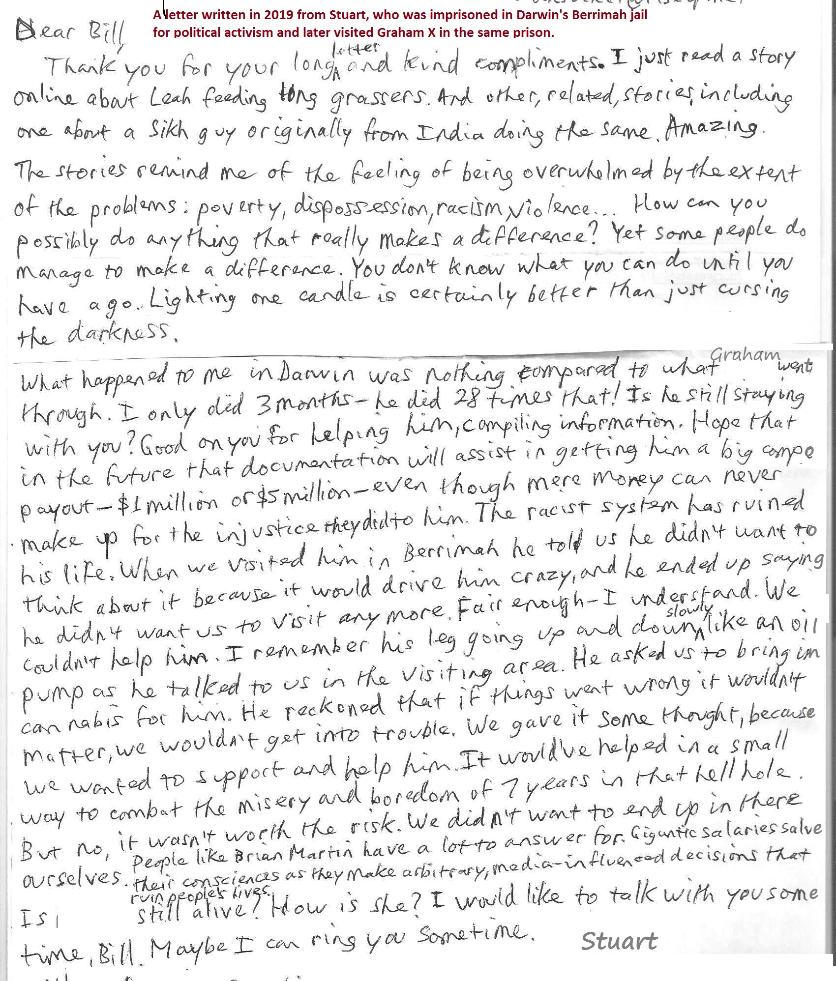 A letter written in 2019 from Stuart, who was imprisoned in Darwin's Berrimah jail
for political activism and later visited Graham X in the same prison.
Dear Bill,
Thank you for your long letter and kind compliments. I just read a story
online about Leah feeding long grassers. And other, related, stories, including
one about a Sikh guy originally from India doing the same. Amazing.
The stories remind me of the feeling of being overwhelmed by the extent
of the problems: poverty, dispossession, racism, violence... How can you
possibly do anything that really makes a difference? Yet some people do
manage to make a difference. You don't know what you can do until you
have a go. Lighting one candle is certainly better than just cursing
the darkness.
What happened to me in Darwin was nothing compared to what Graham went
through. I only did 3 months – he did 28 times that! Is he still staying
with you? Good on you for helping him, compiling information. Hope that
in the future that documentation will assist in getting him a big compo
payout – $1 million or $5 million – even though mere money can never
make up for the injustice they did to him. The racist system has ruined
his life. When we visited him in Berrimah he told us he didn't want to
think about it because it would drive him crazy, and he ended up saying
he didn't want us to visit any more. Fair enough – I understand. We
couldn't help him. I remember his leg going up and down slowly like an oil
pump as he talked to us in the visiting area. He asked us to bring in
cannabis for him. He reckoned that if things went wrong it wouldn't
matter, we wouldn't get into trouble. We gave it some thought, because
we wanted to support and help him. It would've helped in a small
way to combat the misery and boredom of 7 years in that hell hole.
But no, it wasn't worth the risk. We didn't want to end up in there
ourselves. People like Brian Martin have a lot to answer for. Gigantic salaries salve
their consciences as they make arbitrary, media-influenced decisions that
ruin people's lives.
Is still alive? How is she? I would like to talk with you some
time, Bill. Maybe I can ring you sometime. Stuart